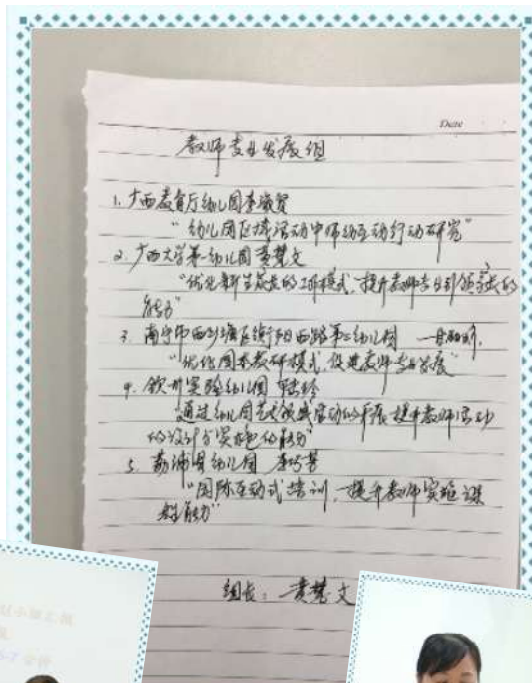 Date
教师专业发展组
1. 广西教育厅幼儿园李
"幼儿园区域活动中师幼互动行动研究"
2. 广西大学第一幼儿园黄慧文
"优化新生家长的工作模式,提升教师专业引领家长的
能力"
3. 南宁市西乡塘区衡阳西路第二幼儿园
"优化园本教研模式,促进教师专业发展"
4. 钦州实验幼儿园 陆玲
通过幼儿园艺术领域活动的开展提升教师活动
的设计与实施的能力"
5. 荔浦县幼儿园 李巧芳
"园际互动式培训,提升教师实施课
程能力"
组长:黄慧文
小组汇报
5-7分钟